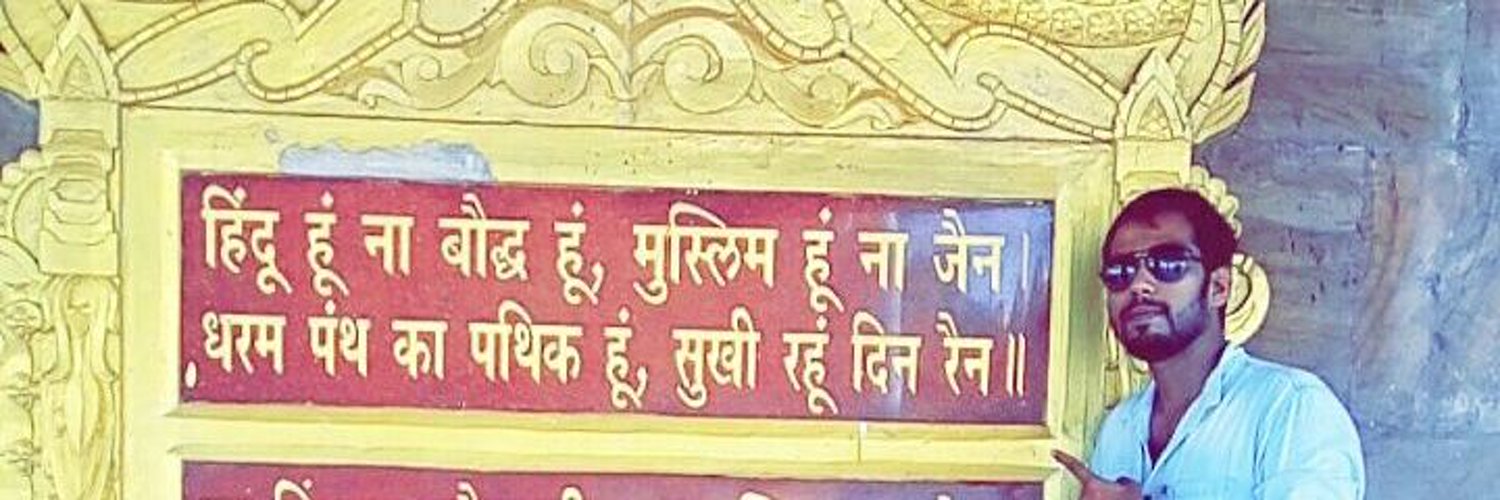 हिंदू हूं ना बौद्ध हूं, मुस्लिम हूं ना जैन।
धरम पंथ का पथिक हूं, सुखी रहूं दिन रैन॥